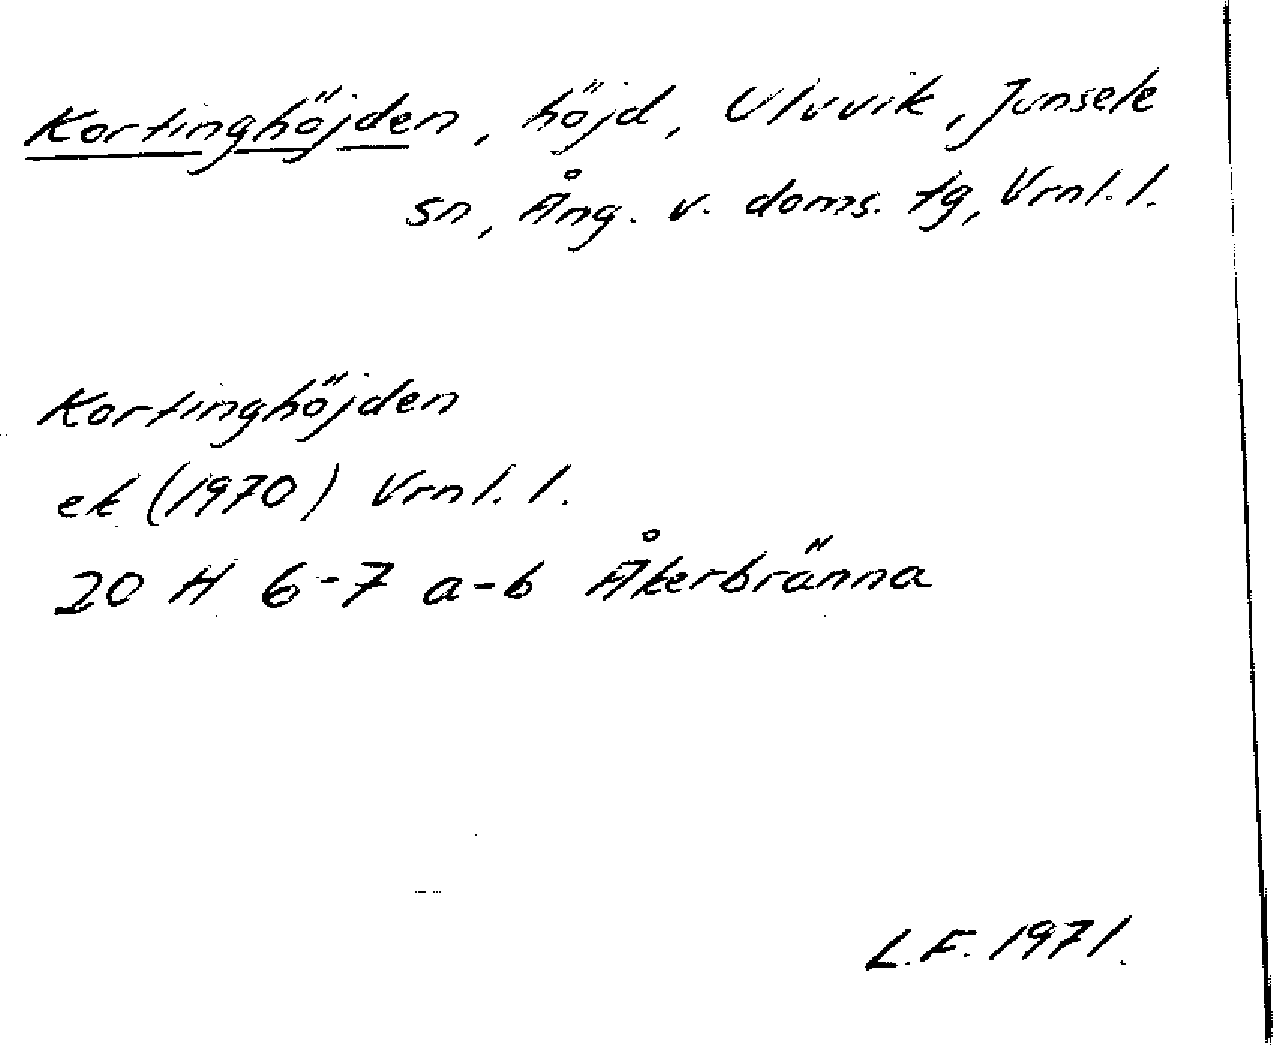 Kortinghöjden, höjd, Uluvik, Junsele
sn, Ång. v. doms. tg, Vrnl. l.
Kortinghöjden
ek (1970) Vrnl. l.
20 H 6-7 a-b Åkerbränna
L.F. 1971.